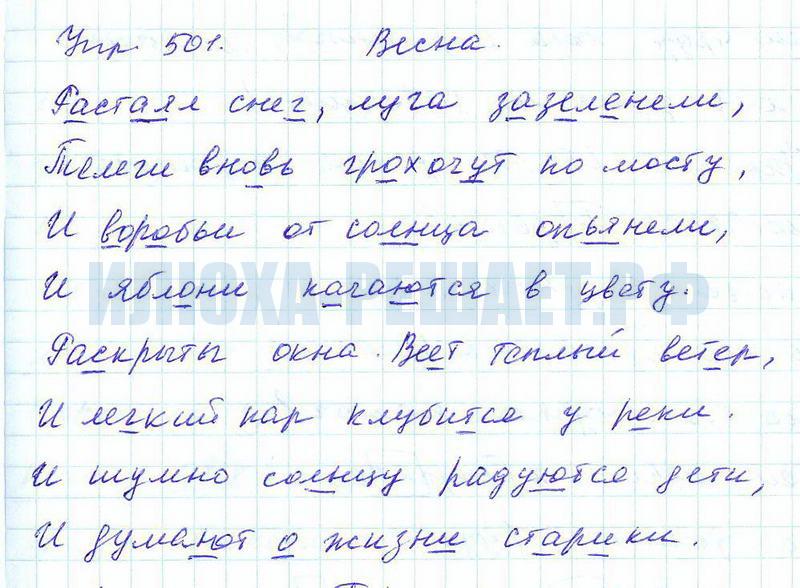 Упр. 501. Весна.
Растаял снег, луга зазеленели,
Телеги вновь грохочут по мосту,
И воробьи от солнца опьянели,
И яблони качаются в цвету.
ИЛЮХА-РЕШАЕТ.РФ
Раскрыты окна. Веет теплый ветер,
И легкий пар клубится у реки.
И шумно солнцу радуются дети,
И думают о жизни старики.